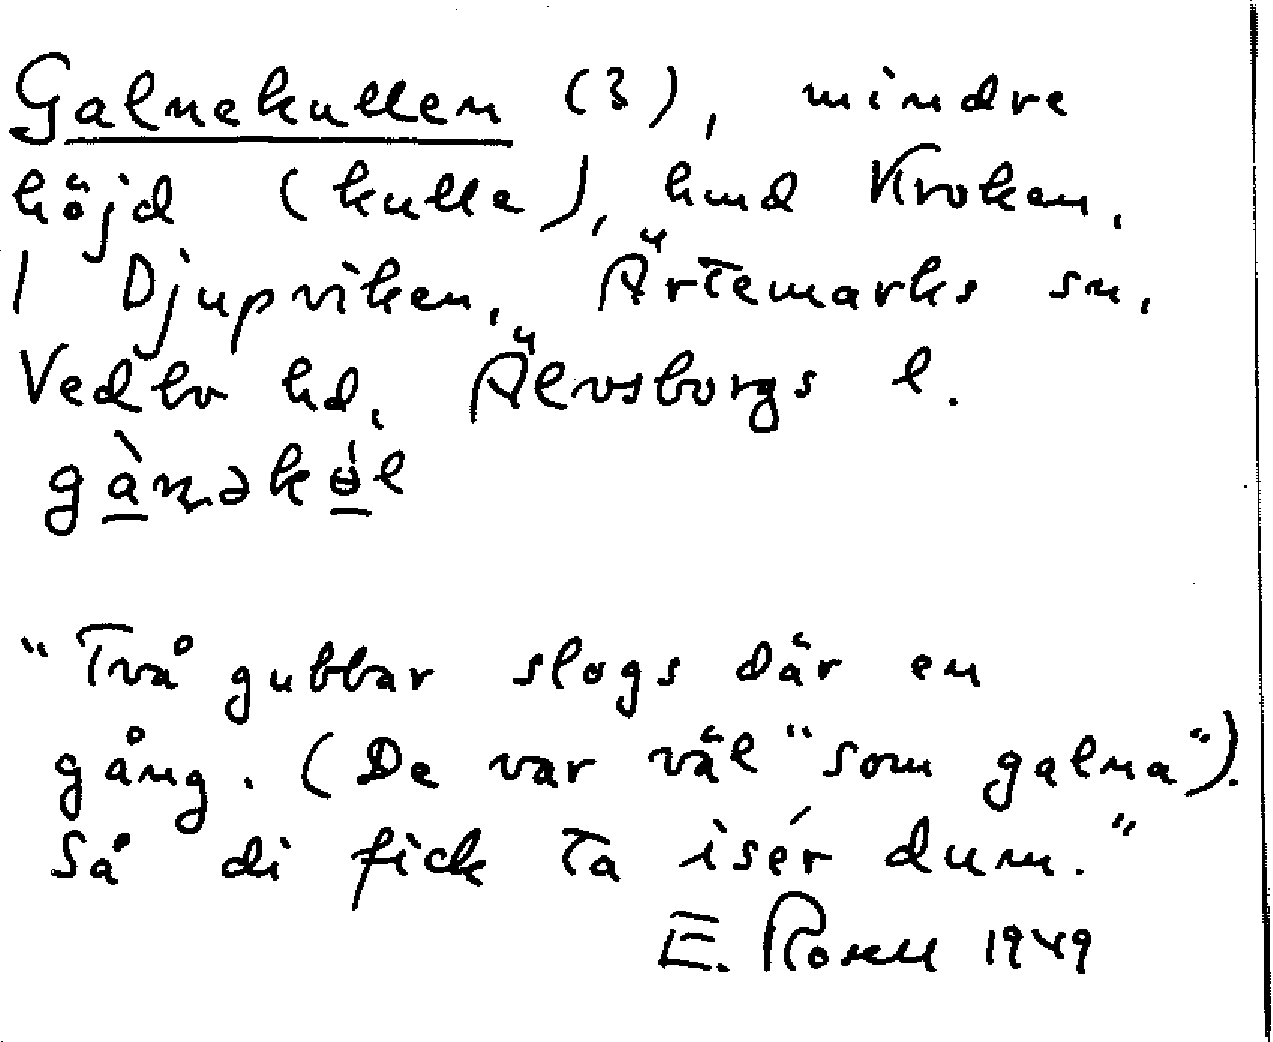 Galnekullen (3), mindre
höjd (kulle), hmd Kroken,
1 Djupviken, Ärtemarks sn,
Vedbo hd, Älvsborgs l.
"Två gubbar slogs där en
gång. (De var väl "som galna").
Så di fick ta isér dum."
E. Rosell 1949